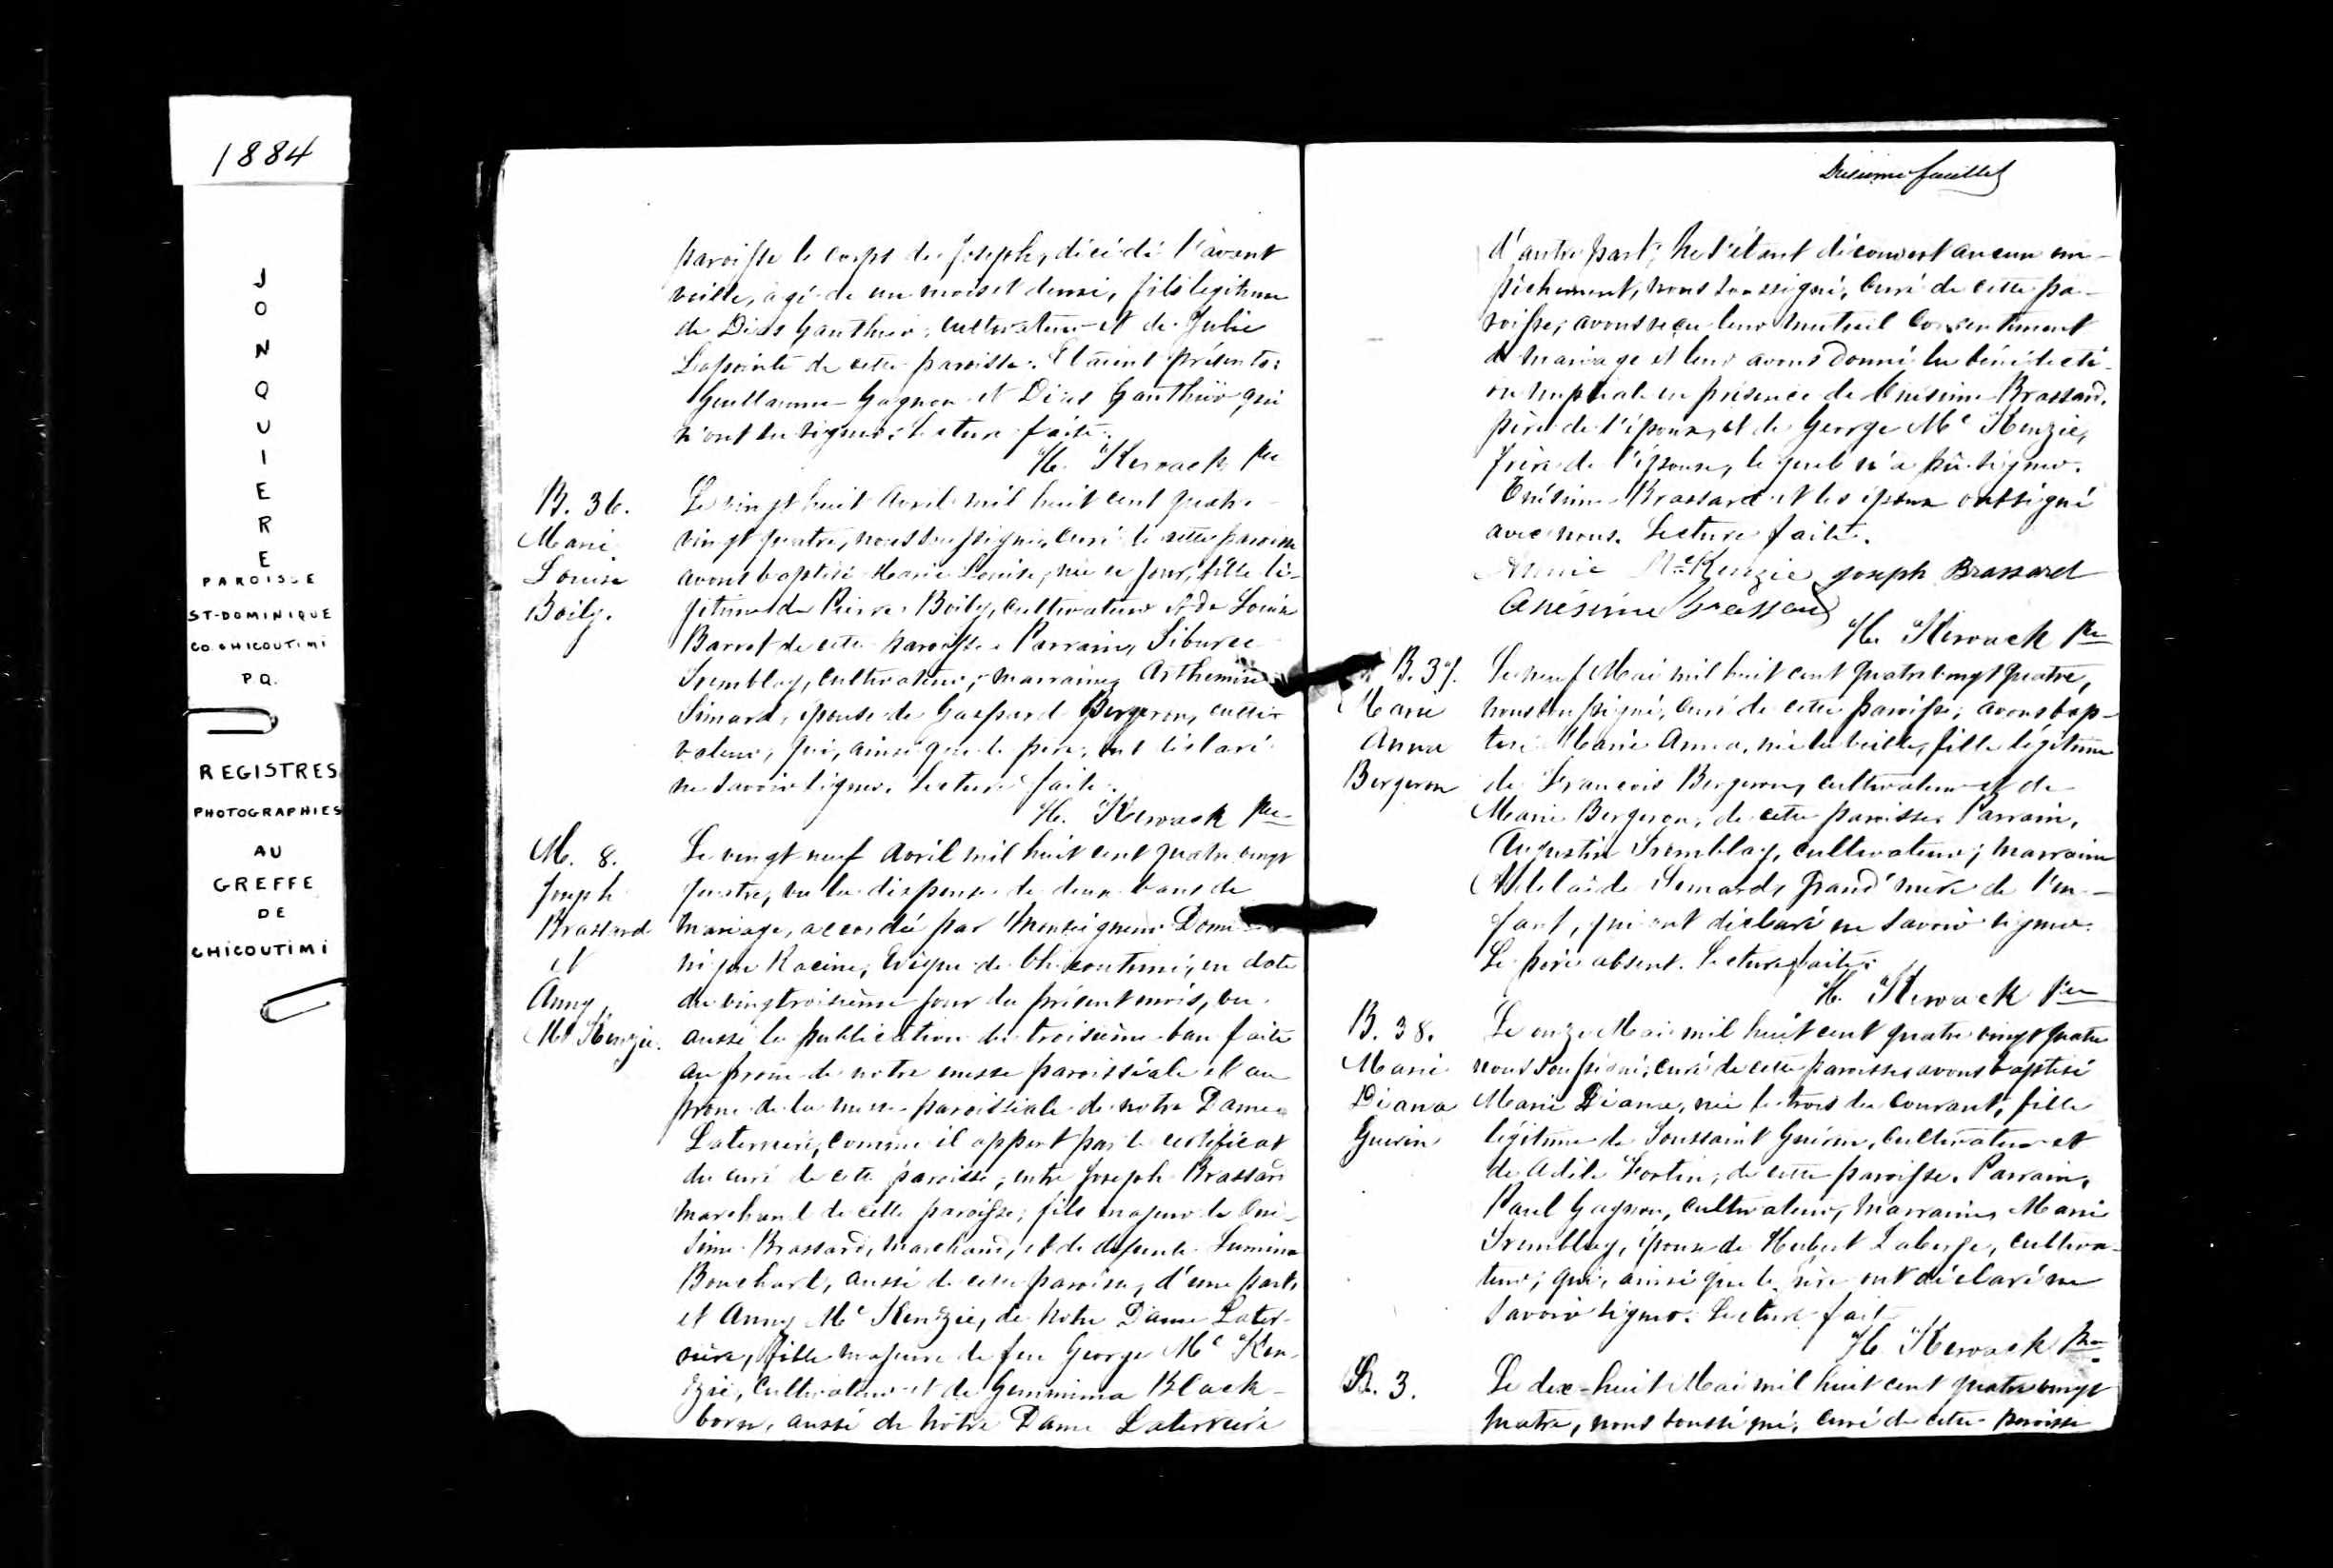 1884
JONQUIERE
PAROISSE
ST-DOMINIQUE
CO. CHICOUTIMI
P.Q.
REGISTRES
PHOTOGRAPHIES
AU
GREFFE
DE
CHICOUTIMI
paroisse le corps de Joseph, décédé l'avant
veille, âgé de un mois et demi, fils légitime
de Dias Gauthier, cultivateur et de Julie
Lapointe de cette paroisse. Etaient présents:
Guillaume Gagnon et Dias Gauthier qui
n'ont su signer. Lecture faite.
H. Kerouack Ptre
B. 36.
Marie
Louise
Boily.
Le vingt huit Avril mil huit cent quatre
vingt quatre, nous soussigné, curé de cette paroisse
avons baptisé Marie Louise, née ce jour, fille lé-
gitime de Pierre Boily, cultivateur & de Louise
Barret de cette paroisse. Parrain, Tiburce
Tremblay, cultivateur; marraine, Arthemise
Simard, épouse de Gaspard Bergeron, culti-
vateur; qui, ainsi que le père, ont déclaré
ne savoir signer. Lecture faite.
H. Kerouack Ptre
M. 8.
Joseph
Brassard
et
Anny
Mc Kenzie.
Le vingt neuf Avril mil huit cent quatre vingt
quatre, vu la dispense de deux bans de
mariage, accordée par Monseigneur Domi-
nique Racine, Evêque de Chicoutimi, en date
du vingtroisième jour du présent mois, vu
aussi la publication du troisième ban faite
au prône de notre messe paroissiale et au
prône de la messe paroissiale de notre Dame
Laterrière, comme il appert par le certificat
du curé de cette paroisse; entre Joseph Brassard
marchand de cette paroisse; fils majeur de Oné-
sime Brassard, marchand, et de défunte Lumina
Bouchard, aussi de cette paroisse, d'une part,
et Anny Mc Kenzie, de Notre Dame Later-
rière, fille majeure de feu George Mc Ken-
zie, cultivateur et de Gemmima Black-
born, aussi de Notre Dame Laterrière
Dixième feuillet
d'autre part; ne s'étant découvert aucun em-
pêchement, nous soussigné, Curé de cette pa-
roisse, avons reçu leur mutuel consentement
de mariage et leur avons donné la bénédicti-
on nuptiale en présence de Onésime Brassard,
père de l'époux, et de George Mc Kenzie,
frère de l'épouse, lequel n'a pû signer.
Onésime Brassard et les époux ont signé
avec nous. Lecture faite.
Annie McKenzie Joseph Brassard
Onésime Brassard
H. Kerouack Ptre
B. 37.
Marie
Anna
Bergeron
Le neuf Mai mil huit cent quatre vingt quatre,
nous soussigné, curé de cette paroisse, avons bap-
tisé Marie Anna, née la veille, fille légitime
de François Bergeron, cultivateur et de
Marie Bergeron, de cette paroisse. Parrain,
Augustin Tremblay, cultivateur; marraine
Adelaïde Simard, grand'mère de l'en-
fant, qui ont déclaré ne savoir signer.
Le père absent. Lecture faite.
H. Kerouack Ptre
B. 38.
Marie
Diana
Guérin
Le onze Mai mil huit cent quatre vingt quatre
nous soussigné, curé de cette paroisse, avons baptisé
Marie Diana, née le trois du courant, fille
légitime de Toussaint Guérin, cultivateur et
de Adèle Fortin, de cette paroisse. Parrain,
Paul Gagnon, cultivateur, marraine, Marie
Tremblay, épouse de Hubert Laberge, cultiva-
teur; qui, ainsi que le père ont déclaré ne
savoir signer. Lecture faite
H. Kerouack Ptre
S. 3.
Le dix-huit Mai mil huit cent quatre vingt
quatre, nous soussigné, curé de cette paroisse